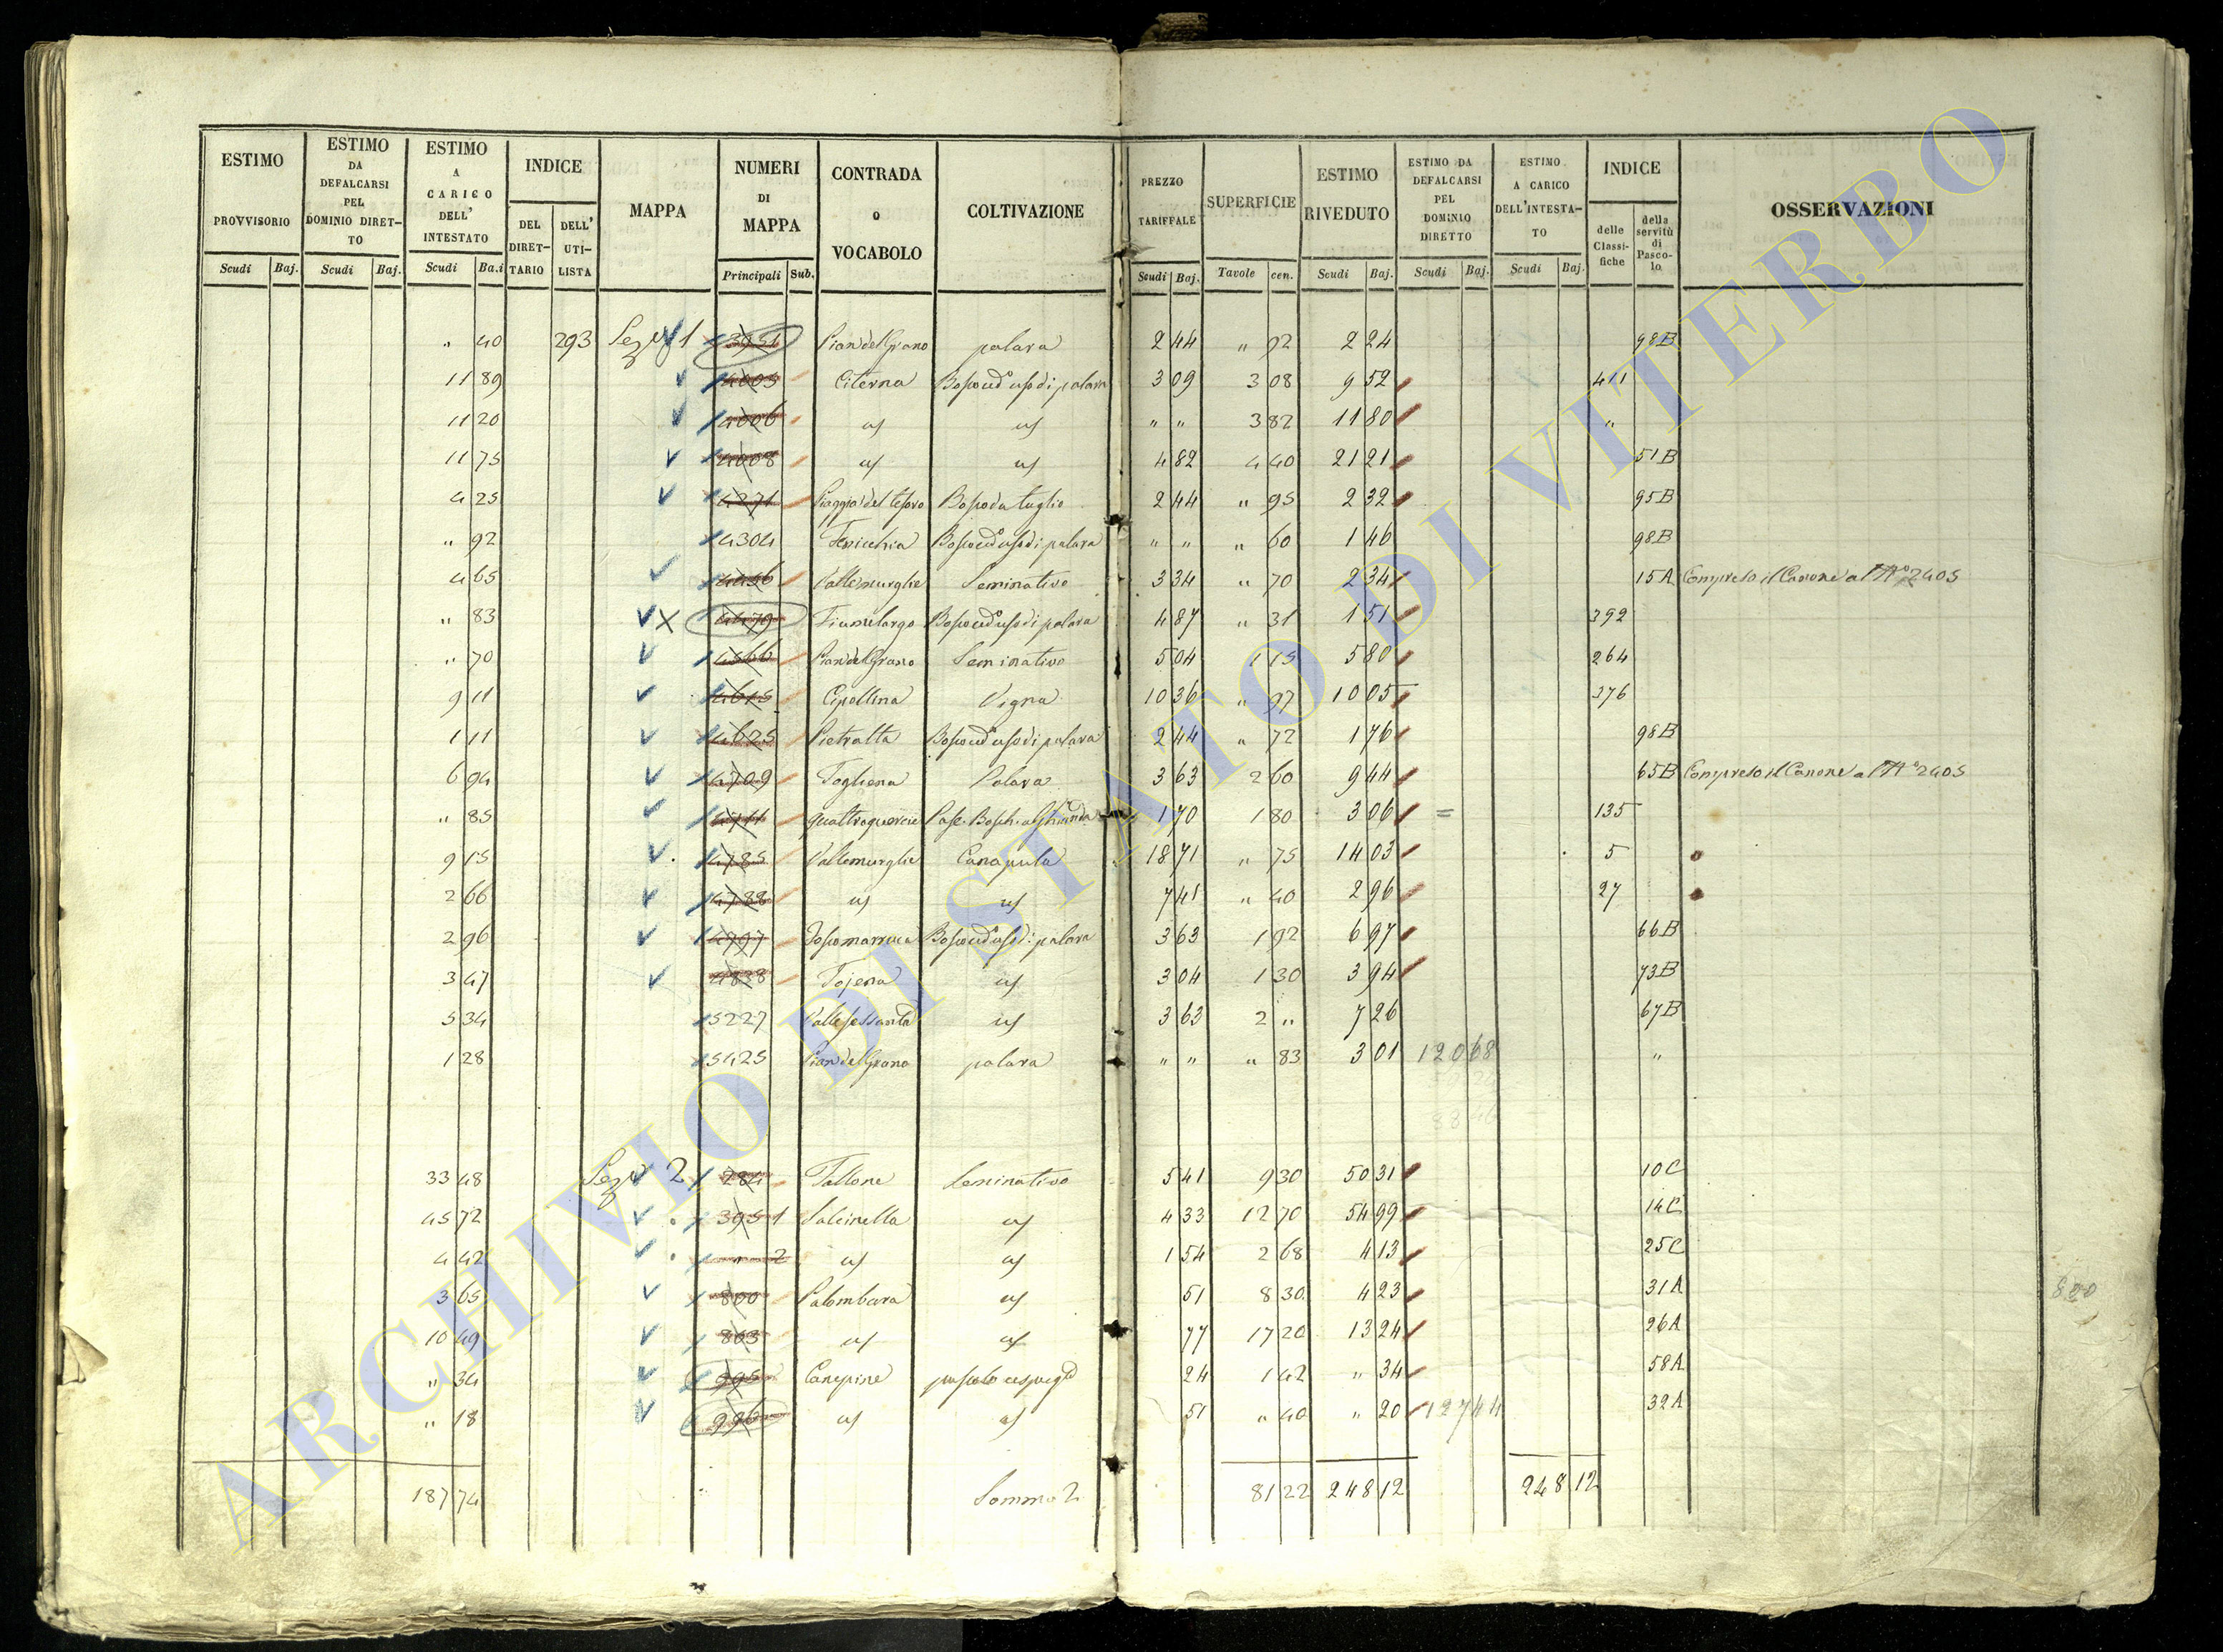 ESTIMO PROVVISORIO Scudi Baj.
ESTIMO DA DEFALCARSI PEL DOMINIO DIRET-TO Scudi Baj.
ESTIMO A CARICO DELL' INTESTATO Scudi Ba.i
INDICE DEL DIRET-TARIO DELL' UTI-LISTA
MAPPA
NUMERI DI MAPPA Principali Sub.
CONTRADA O VOCABOLO
COLTIVAZIONE
PREZZO TARIFFALE Scudi Baj.
SUPERFICIE Tavole cen.
ESTIMO RIVEDUTO Scudi Baj.
ESTIMO DA DEFALCARSI PEL DOMINIO DIRETTO Scudi Baj.
ESTIMO A CARICO DELL'INTESTA-TO Scudi Baj.
INDICE delle Classi-fiche della servitù di Pasco-lo
OSSERVAZIONI
" 40 293 1 Pian del Grano palara 2 44 " 92 2 24 98B
11 89 4003 Citerna 3 09 3 08 9 52 411
11 20 4006 us us " " 3 82 11 80 "
11 75 4008 us us 4 82 4 40 21 21 51B
4 25 4271 Piaggia del tesoro Bosco da taglio 2 44 " 95 2 32 95B
" 92 4304 " " " 60 1 46 98B
4 65 4456 Vallemurglie Seminativo 3 34 " 70 2 34 15A Compreso il Canone al N° 2405
" 83 4479 Fiumelargo 4 87 " 31 1 51 392
" 70 4566 Pian del Grano Seminativo 5 04 1 15 5 80 264
9 11 4615 Cipollina Vigna 10 36 " 97 10 05 376
1 11 4625 Pietralta 2 44 " 72 1 76 98B
6 94 4709 Fogliena Palara 3 63 2 60 9 44 65B Compreso il Canone al N° 2405
" 85 4711 quattroquercie 1 70 1 80 3 06 = 135
9 15 4785 Vallemurglie Canapula 18 71 " 75 14 03 5
2 66 4788 us us 7 41 " 40 2 96 27
2 96 4797 3 63 1 92 6 97 66B
3 47 4838 Fojena us 3 04 1 30 3 94 73B
5 34 5227 us 3 63 2 " 7 26 67B
1 28 5425 Pian del Grano palara " " " 83 3 01 120 68 "
33 48 2 284 Fallone Seminativo 5 41 9 30 50 31 10C
45 72 395 1 Salcinella us 4 33 12 70 54 99 14C
4 42 " 2 us us 1 54 2 68 4 13 25C
3 65 800 Palombara us 51 8 30 4 23 31A
10 49 803 us us 77 17 20 13 24 26A
" 34 995 Canepine 24 1 42 " 34 58A
" 18 996 us us 51 " 40 " 20 127 44 32A
187 74 Somma 81 22 248 12 248 12
ARCHIVIO DI STATO DI VITERBO